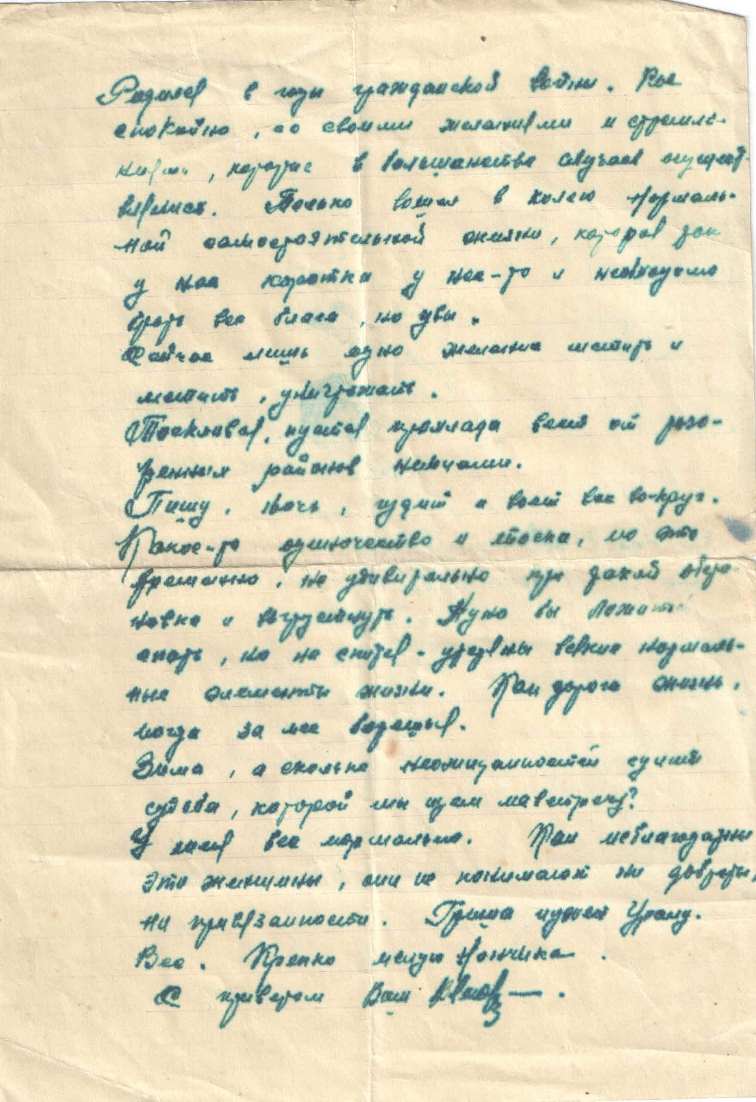 Родился в годы гражданской войны. Рос
спокойно, со своими желаниями и стремле-
ниями, которые в большинстве случаев осущест-
влялись. Только вошел в колею нормаль-
ной самостоятельной жизни, которая так
у нас коротка у нее-то и необходимо
брать все блага, но увы.
Сейчас лишь одно желание мстить и
мстить, уничтожать.
Тоскливая, пустая прохлада веет от разо-
ренных районов немцами.
Пишу, ночь, гудит и воет все во-круг.
Какое-то одиночество и тоска, но это
временно, не удивительно при такой обста-
новке и взгрустнуть. Нужно бы ложиться
спать, но не спится - утеряны всякие нормаль-
ные элементы жизни. Как дорога жизнь,
когда за нее борешься.
Зима, а сколько неожиданностей сулит
судьба, которой мы идем навстречу?
У меня все нормально. Как неблагодарны
эти женщины, они не понимают ни доброты,
ни привязанности. Гриша нужен Урану.
Все. Крепко целую Нончика.
С приветом Ваш